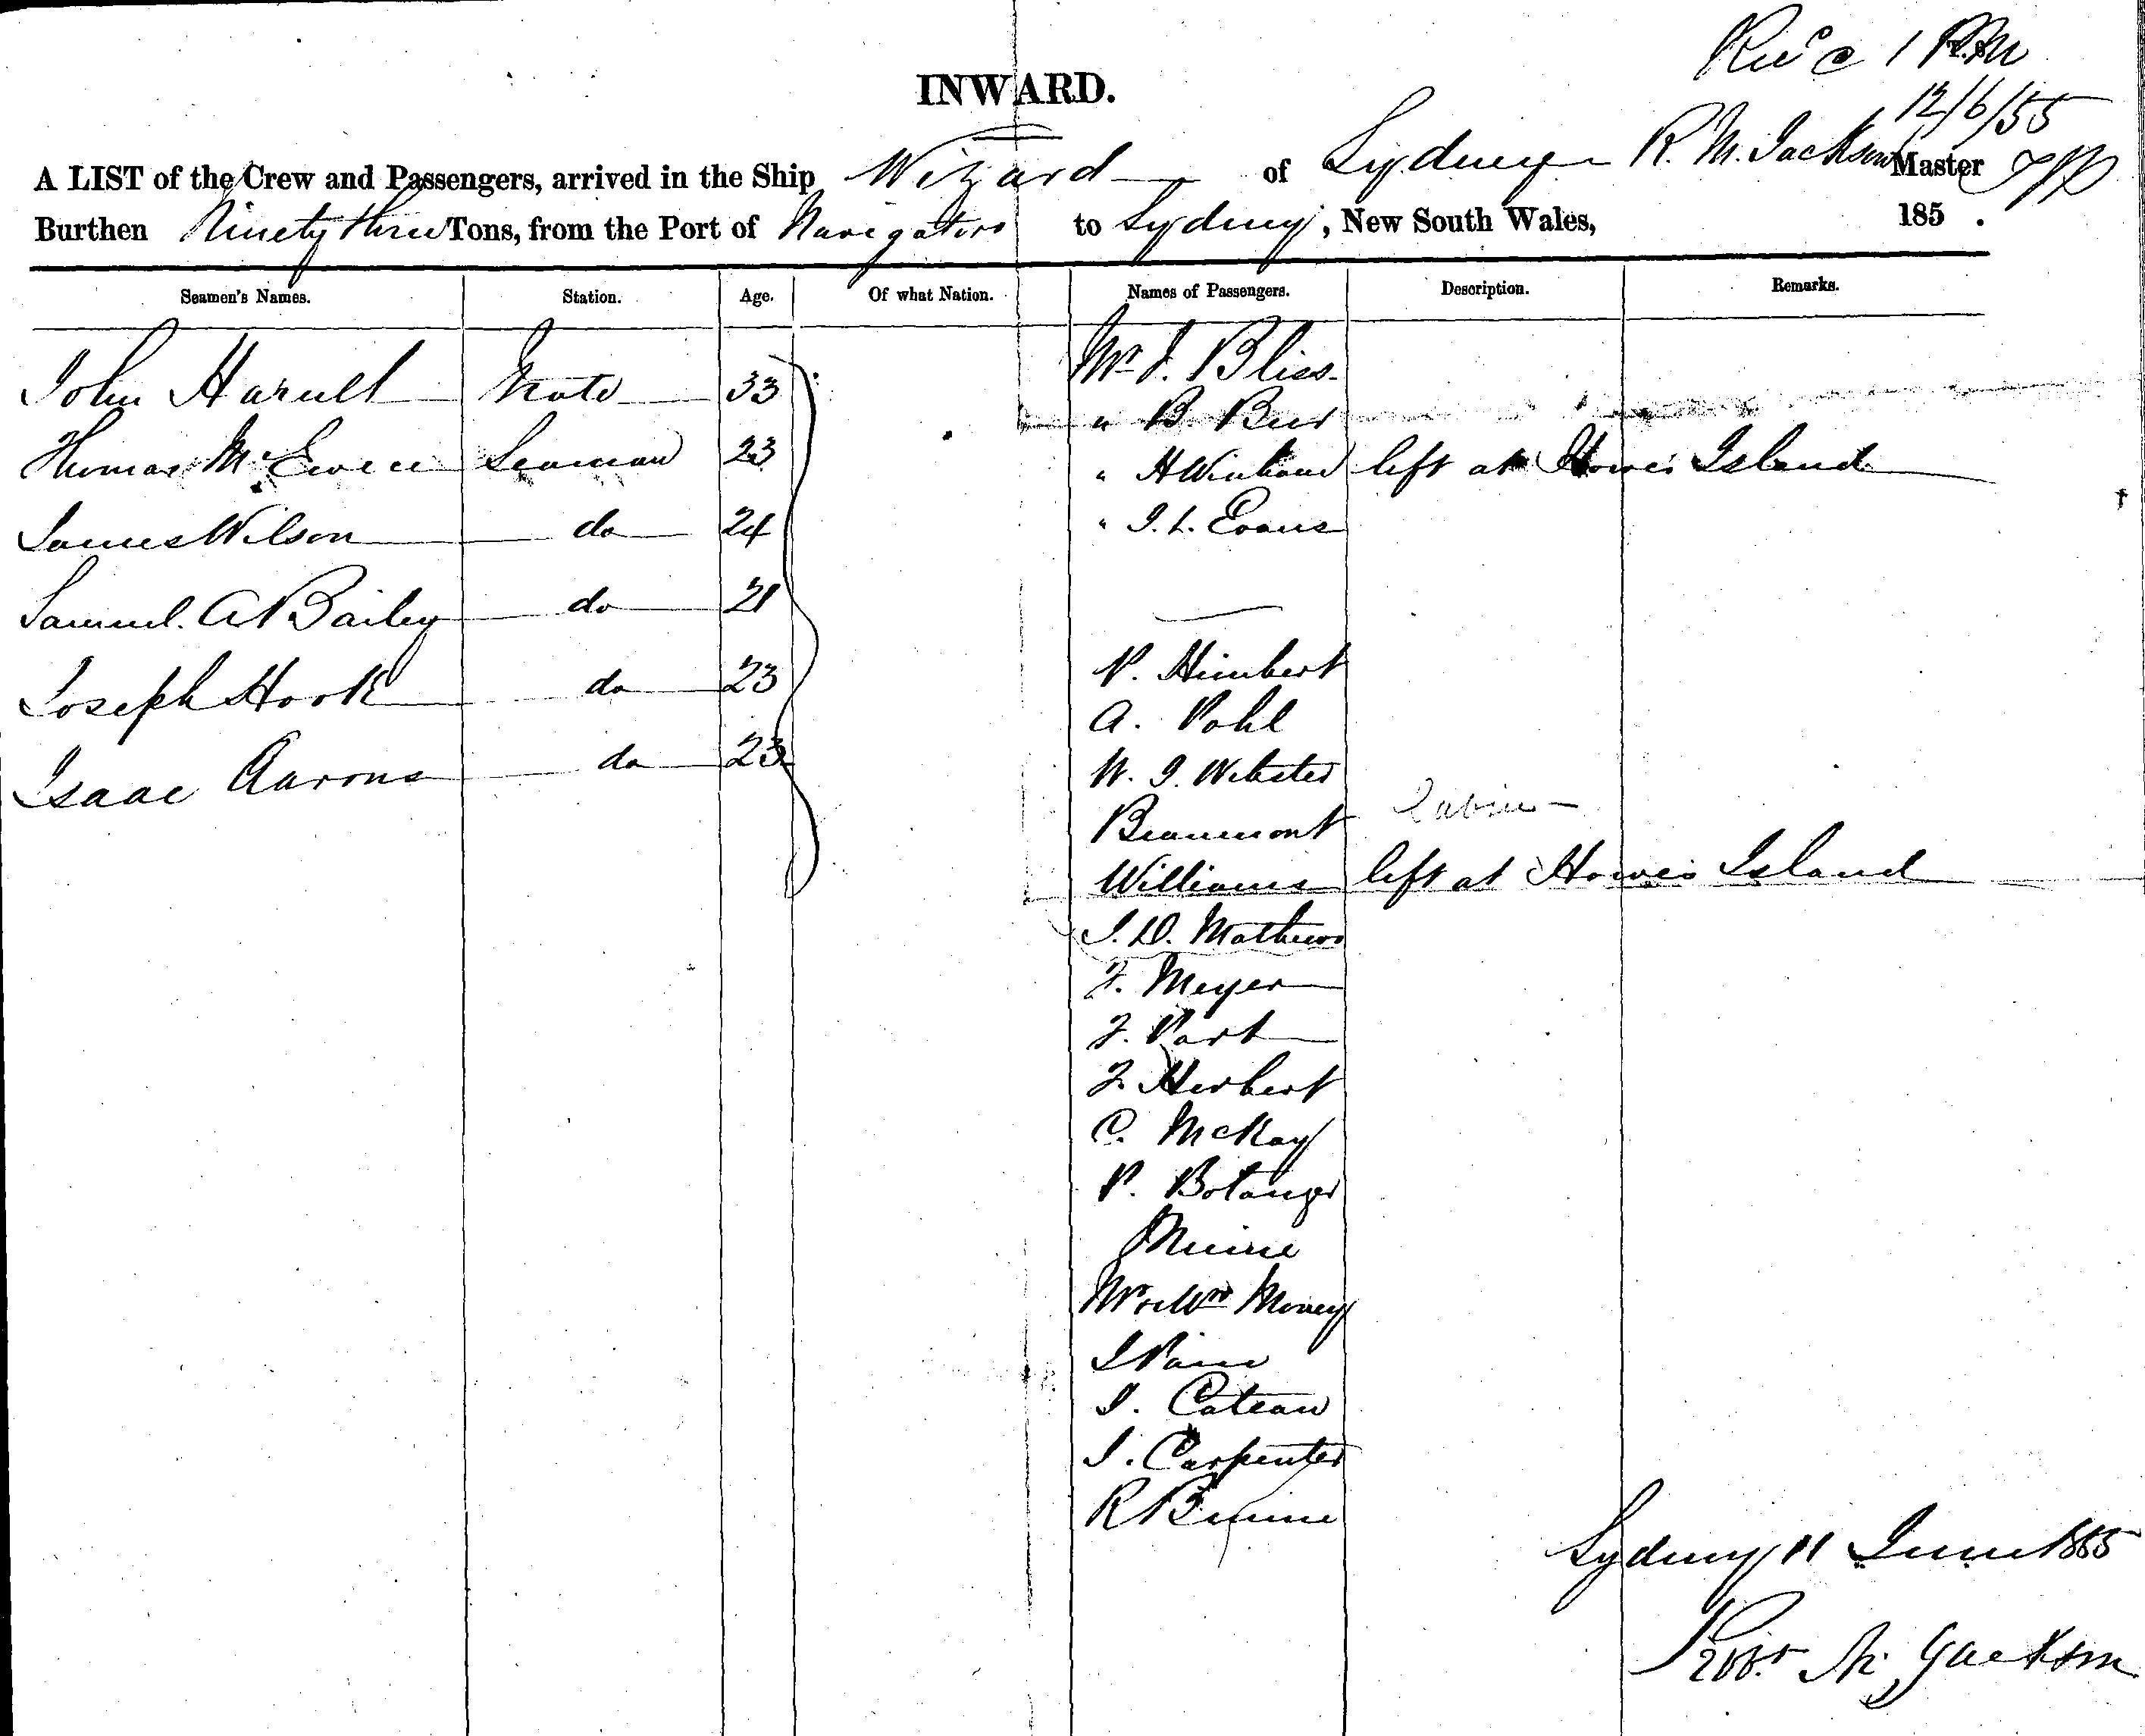 Rec'd 1 PM
12/6/55
INWARD.
A LIST of the Crew and Passengers, arrived in the Ship Wizard of Sydney R. M. Jackson Master
Burthen Ninety three Tons, from the Port of Navigators to Sydney, New South Wales, 185 .
Seamen's Names. Station. Age. Of what Nation. Names of Passengers. Description. Remarks.
John Mate 33 Mr J. Bliss
Thomas McEwen Seaman 23 " B.
" H left at Howes Island
James Wilson do 24 " J. L. Evans
Samuel A Bailey do 21
Joseph Hook do 23 P. Himbert
A. Pohl
Isaac Aarons do 23 W. J. Webster
Beaumont
Williams left at Howes Island
J. D. Mathews
F. Meyer
F. Part
F. Herbert
C. McKay
P. Botanger
Mr & Mrs Money
J
J. Cateau
J. Carpenter
R
Sydney 11 June 1855
Robt M. Jackson